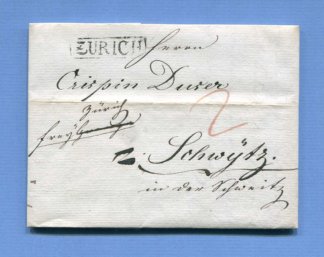 ZURICH Herrn
Crispin Duser
Zürich
frey
2
Schwÿtz.
in der Schweitz